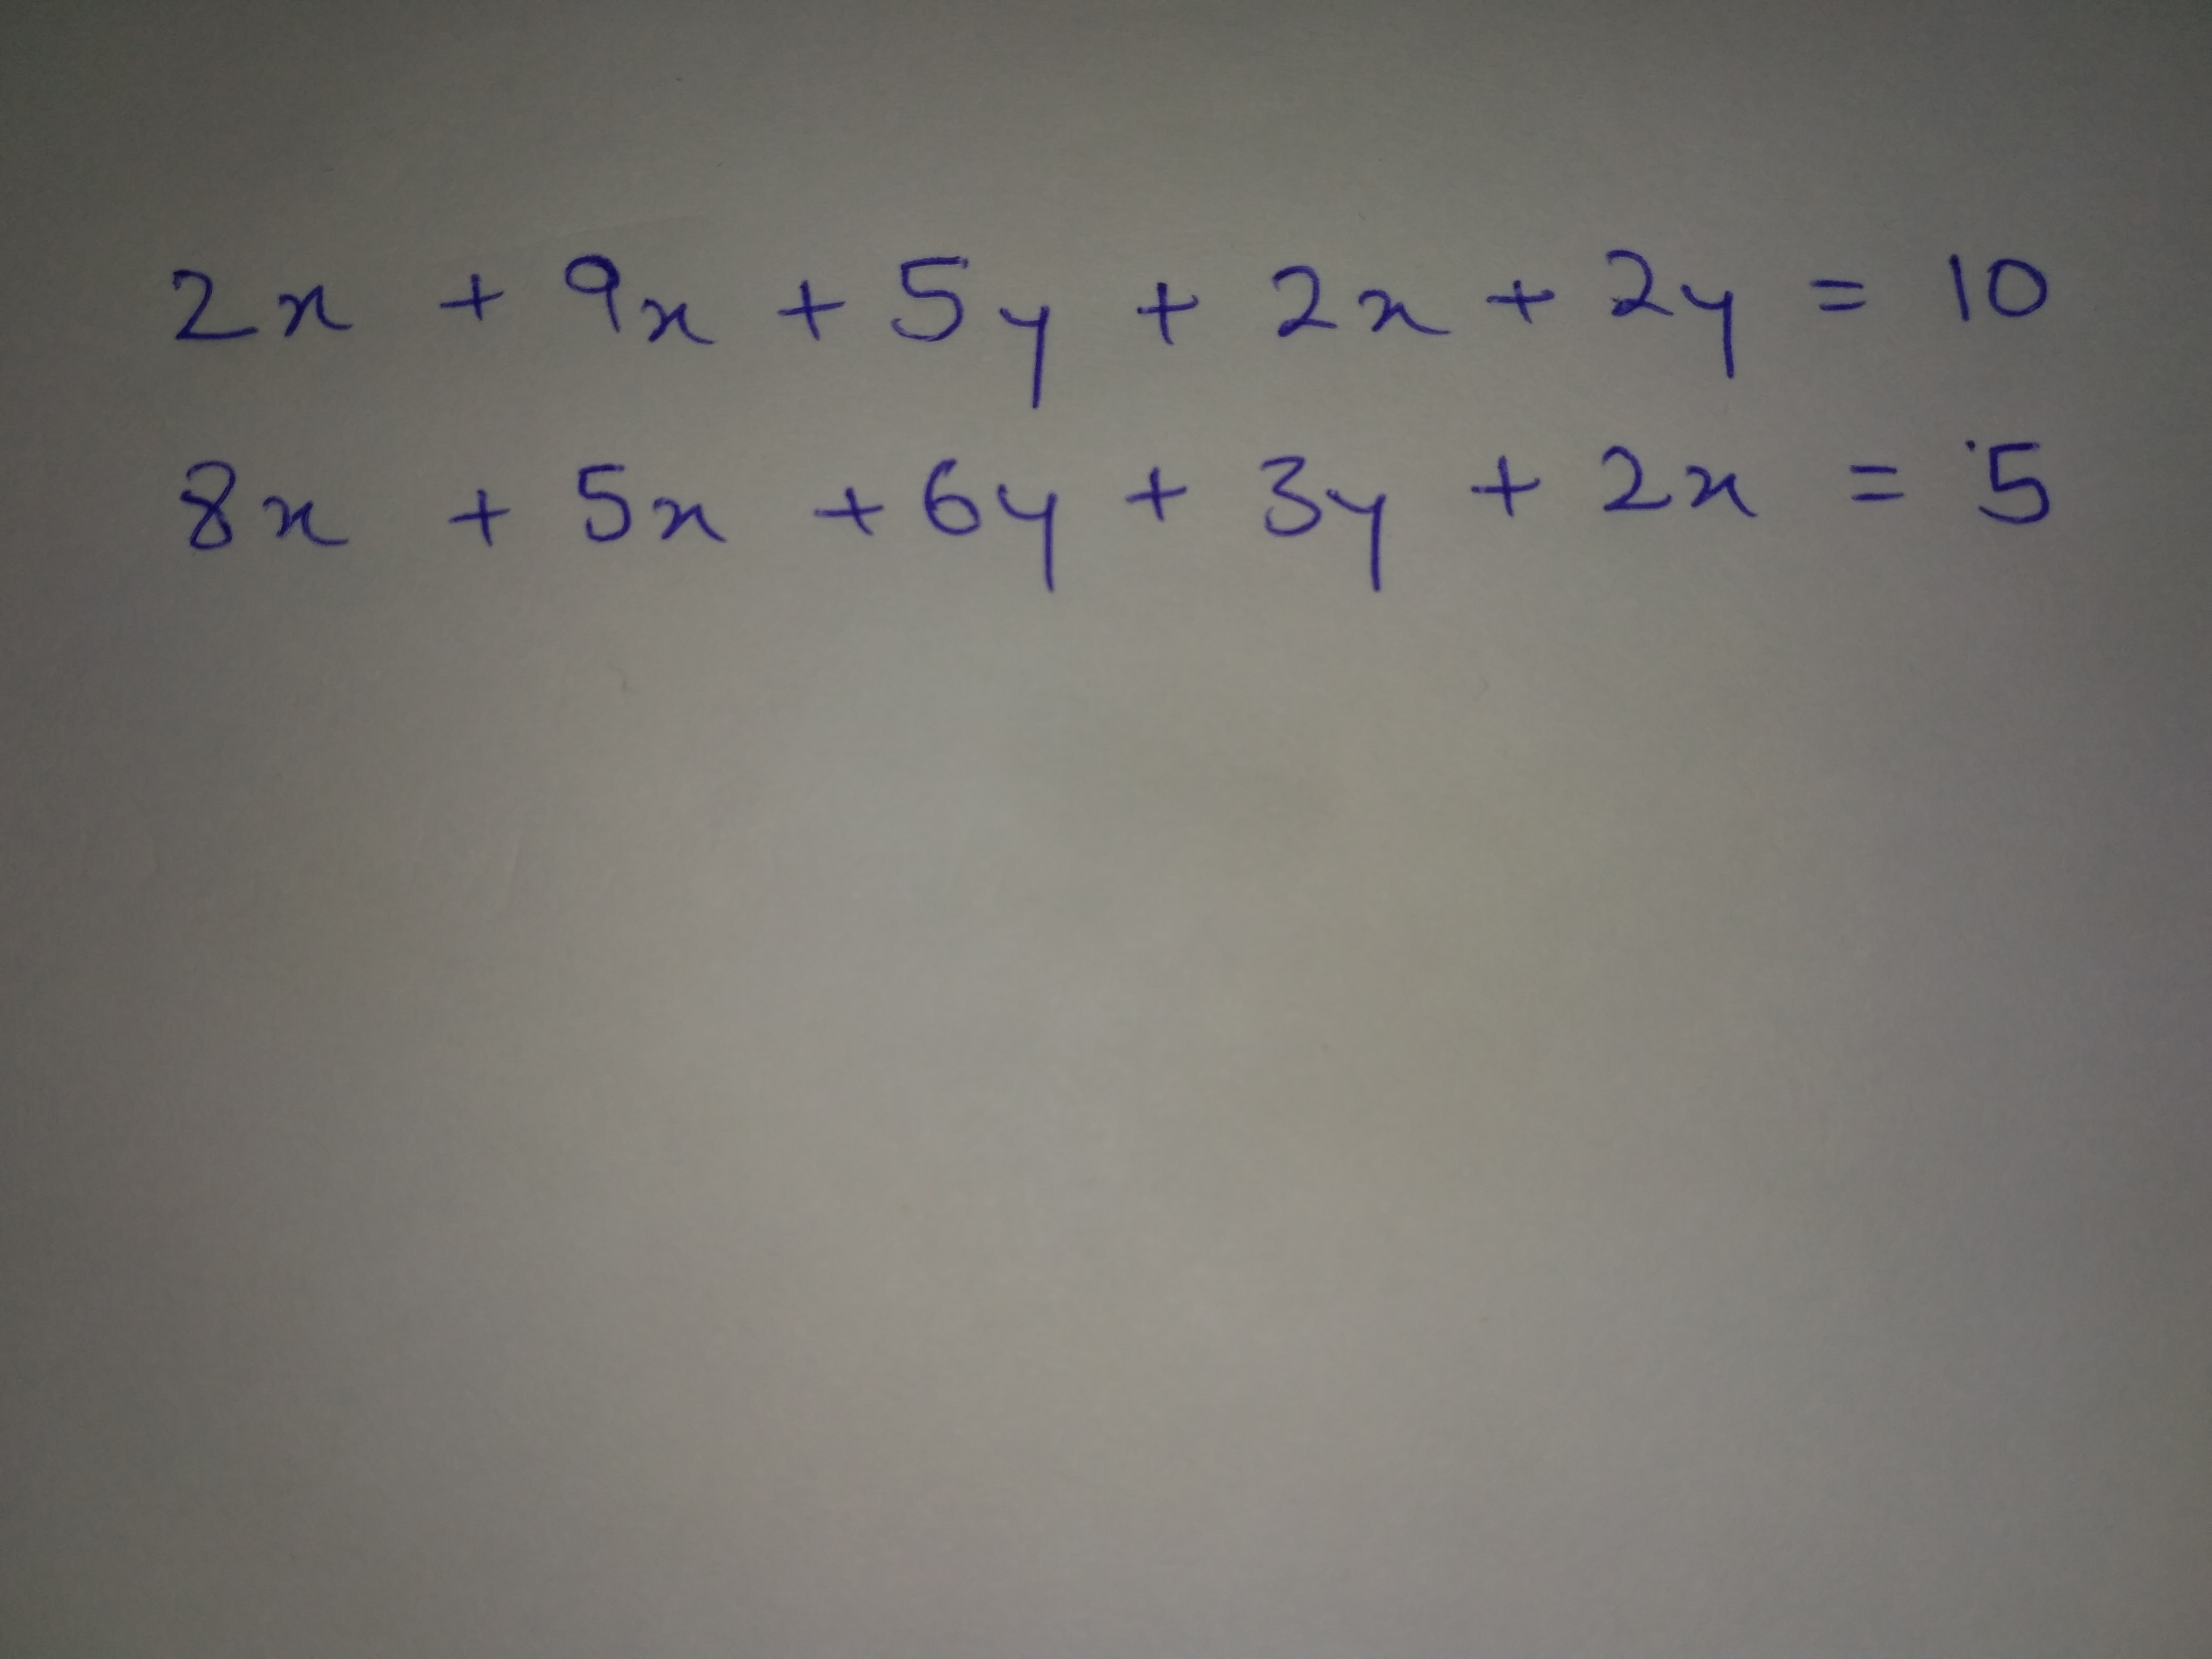 2x + 9x + 5y + 2x + 2y = 10
8x + 5x + 6y + 3y + 2x = 5